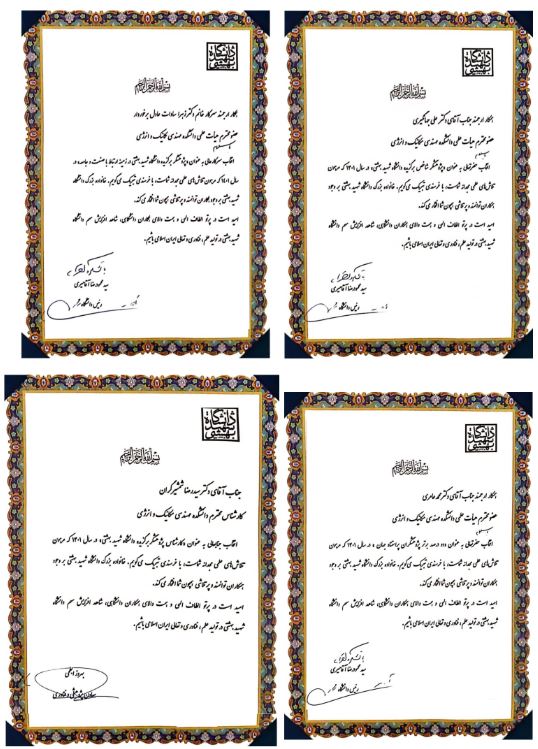 دانشگاه
شهید
بهشتی
بسم الله الرحمن الرحیم
همکار ارجمند سرکار خانم دکتر زهرا سادات عادل برخوردار
عضو محترم هیات علمی دانشکده مهندسی مکانیک و انرژی
انتخاب سرکارعالی به عنوان پژوهشگر برگزیده دانشگاه شهید بهشتی در زمینه ارتباط با صنعت و جامعه در
سال ۱۴۰۱ که مرهون تلاش‌های علمی مجدانه شماست، را خرسندی تبریک می‌گوییم. خانواده بزرگ دانشگاه
شهید بهشتی بر وجود همکاران توانمند و پرتلاشی همچون شما افتخار می‌کند.
امید است در پرتو الطاف الهی و همت والای همکاران دانشگاهی، شاهد افزایش سهم دانشگاه
شهید بهشتی در تولید علم، فناوری و تعالی ایران اسلامی باشیم.
سید محمودرضا آقامیری
رئیس دانشگاه
دانشگاه
شهید
بهشتی
بسم الله الرحمن الرحیم
همکار ارجمند جناب آقای دکتر علی جهانگیری
عضو محترم هیات علمی دانشکده مهندسی مکانیک و انرژی
انتخاب حضرتعالی به عنوان پژوهشگر شاخص برگزیده دانشگاه شهید بهشتی، در سال ۱۴۰۱ که مرهون
تلاش‌های علمی مجدانه شماست، را خرسندی تبریک می‌گوییم. خانواده بزرگ دانشگاه شهید بهشتی بر وجود
همکاران توانمند و پرتلاشی همچون شما افتخار می‌کند.
امید است در پرتو الطاف الهی و همت والای همکاران دانشگاهی، شاهد افزایش سهم دانشگاه
شهید بهشتی در تولید علم، فناوری و تعالی ایران اسلامی باشیم.
سید محمودرضا آقامیری
رئیس دانشگاه
دانشگاه
شهید
بهشتی
بسم الله الرحمن الرحیم
جناب آقای دکتر سیدرضا شمشیرگران
کارشناس محترم دانشکده مهندسی مکانیک و انرژی
انتخاب جنابعالی به عنوان کارشناس پژوهشگر برگزیده دانشگاه شهید بهشتی، در سال ۱۴۰۱ که مرهون
تلاش‌های علمی مجدانه شماست، را خرسندی تبریک می‌گوییم. خانواده بزرگ دانشگاه شهید بهشتی بر وجود
همکاران توانمند و پرتلاشی همچون شما افتخار می‌کند.
امید است در پرتو الطاف الهی و همت والای همکاران دانشگاهی، شاهد افزایش سهم دانشگاه
شهید بهشتی در تولید علم، فناوری و تعالی ایران اسلامی باشیم.
معاون پژوهشی و فناوری
دانشگاه
شهید
بهشتی
بسم الله الرحمن الرحیم
همکار ارجمند جناب آقای دکتر محمد عامری
عضو محترم هیات علمی دانشکده مهندسی مکانیک و انرژی
انتخاب حضرتعالی به عنوان دو درصد برتر پژوهشگران پراستناد جهان، در سال ۱۴۰۱ که مرهون
تلاش‌های علمی مجدانه شماست، را خرسندی تبریک می‌گوییم. خانواده بزرگ دانشگاه شهید بهشتی بر وجود
همکاران توانمند و پرتلاشی همچون شما افتخار می‌کند.
امید است در پرتو الطاف الهی و همت والای همکاران دانشگاهی، شاهد افزایش سهم دانشگاه
شهید بهشتی در تولید علم، فناوری و تعالی ایران اسلامی باشیم.
سید محمودرضا آقامیری
رئیس دانشگاه